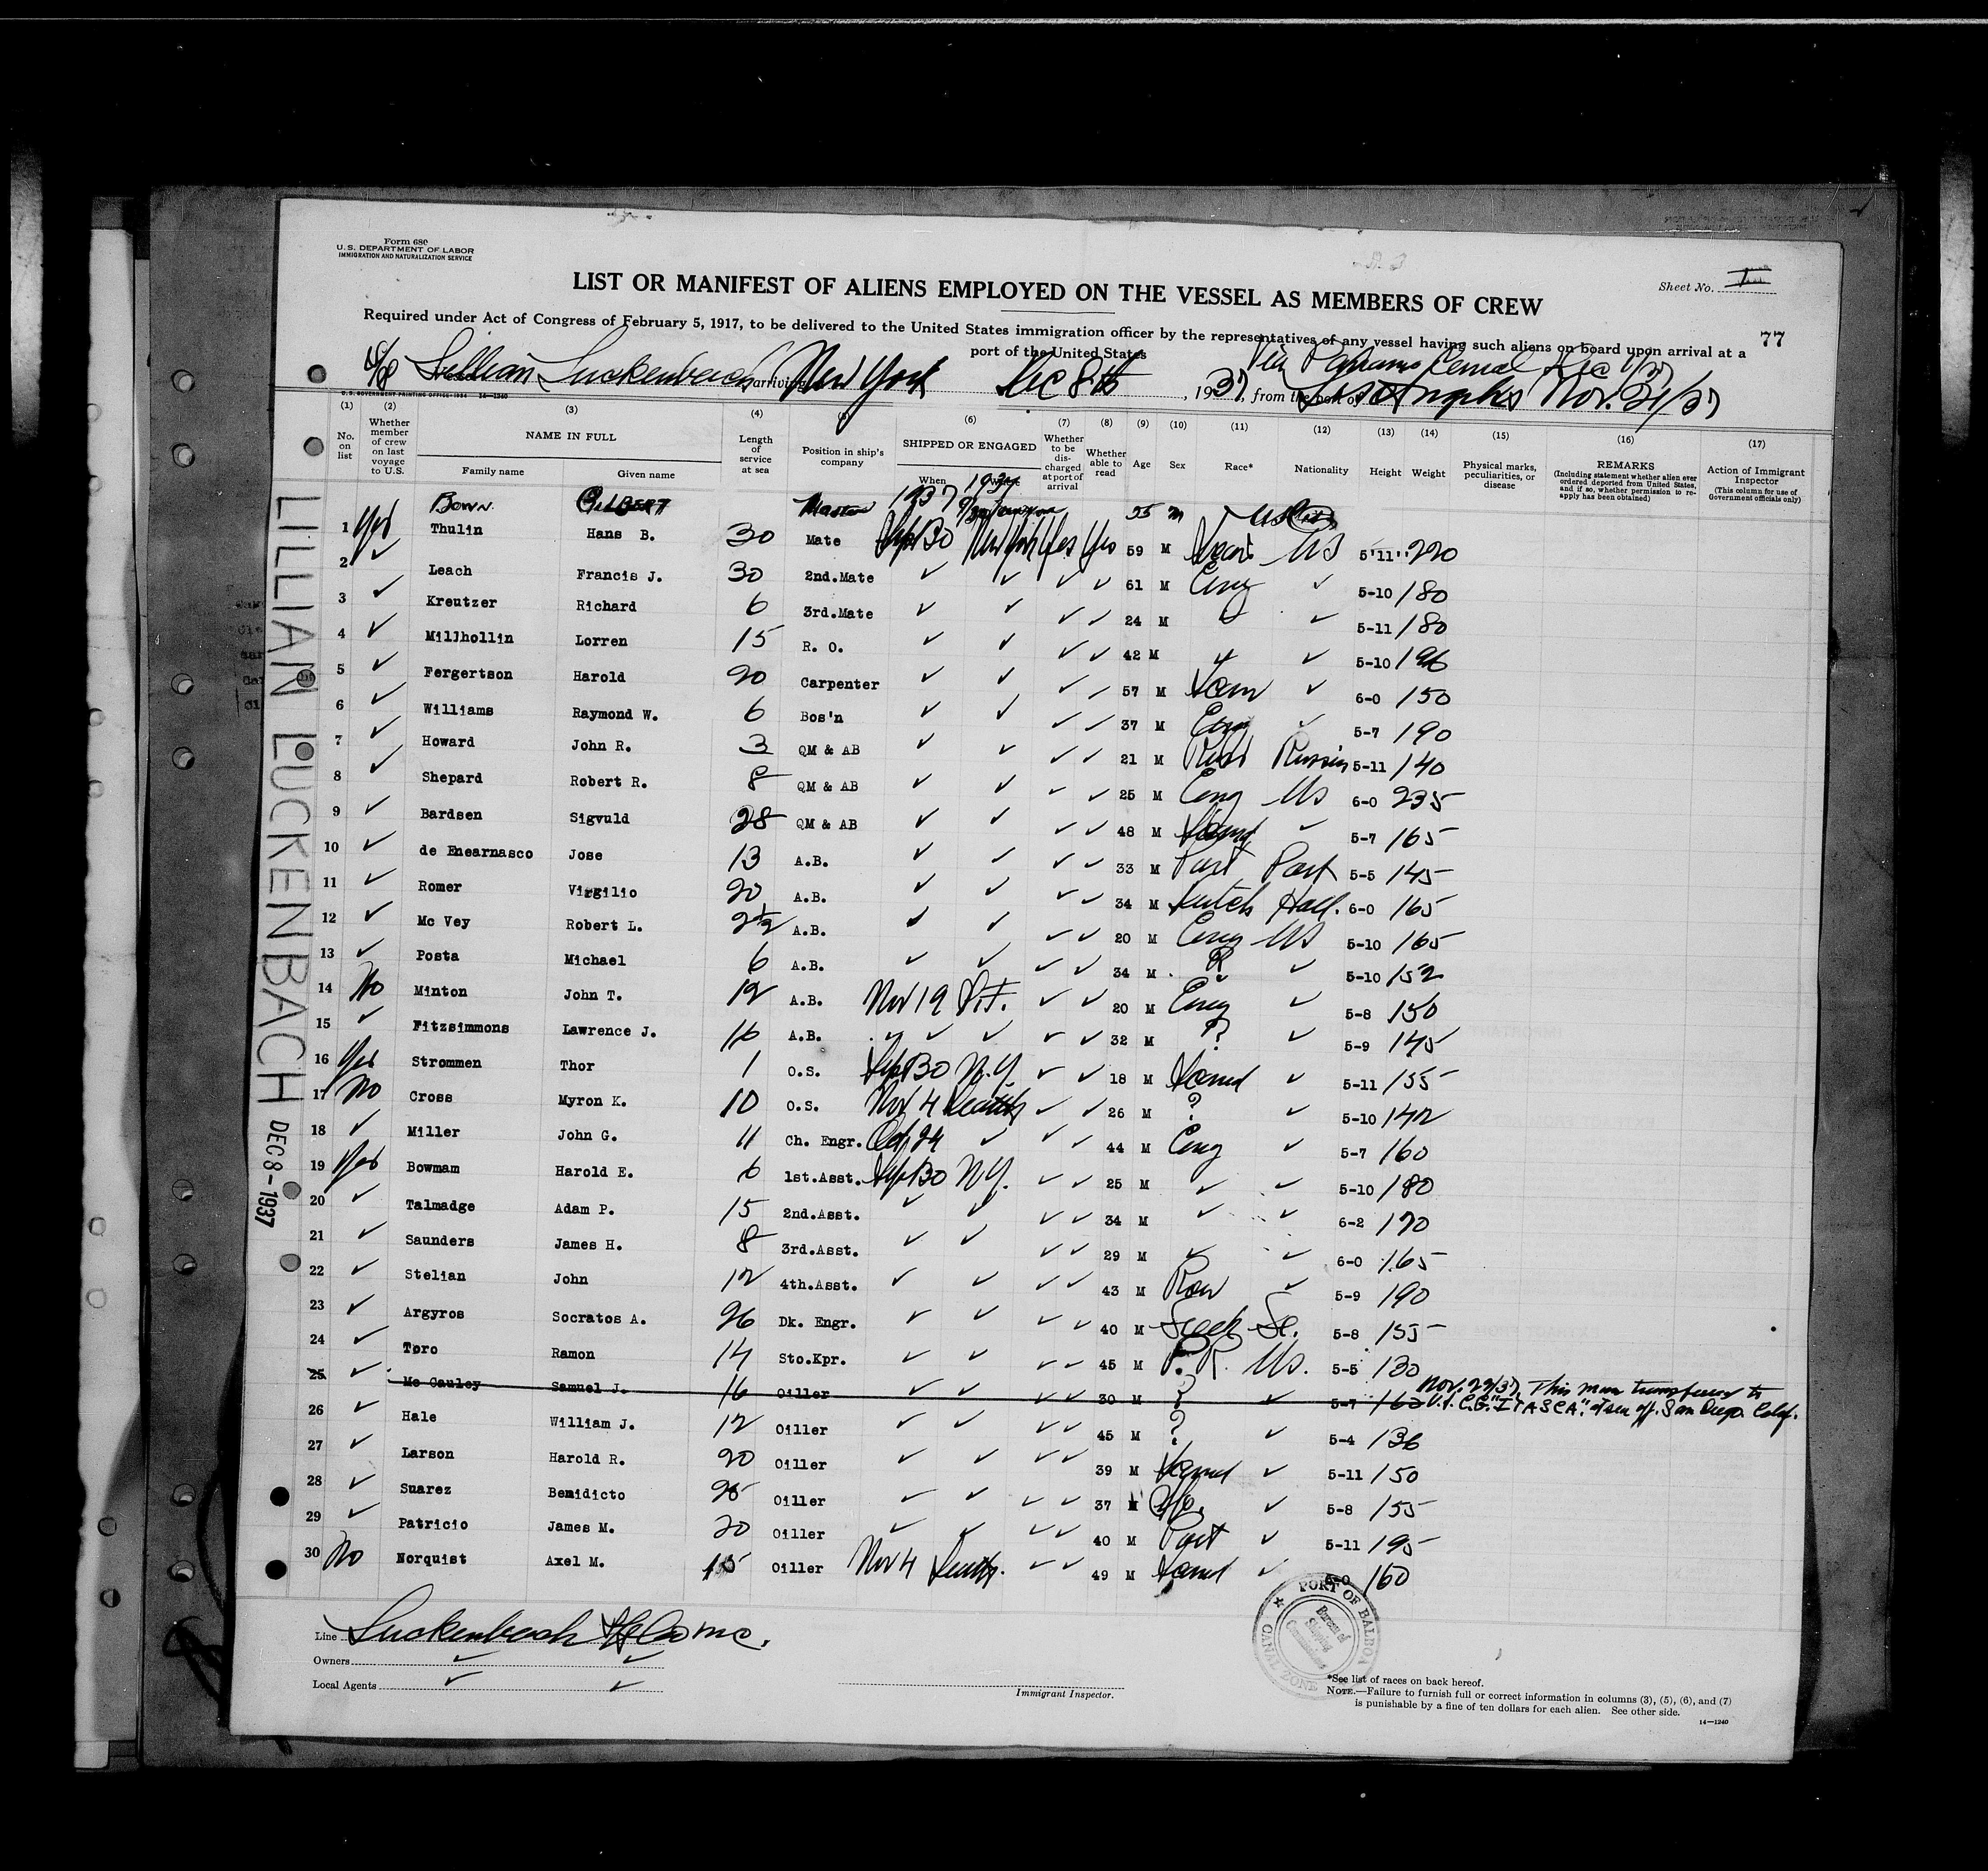 Form 680
U. S. DEPARTMENT OF LABOR
IMMIGRATION AND NATURALIZATION SERVICE
LIST OR MANIFEST OF ALIENS EMPLOYED ON THE VESSEL AS MEMBERS OF CREW
Sheet No.
Required under Act of Congress of February 5, 1917, to be delivered to the United States immigration officer by the representatives of any vessel having such aliens on board upon arrival at a
port of the United States
77
Via Panama Canal Dec 1/37
S/S Lillian Luckenbach arriving New York Dec 8th, 1937, from the port of Los Angeles Nov. 21/37
U. S. GOVERNMENT PRINTING OFFICE: 1934 14—1240
(1) (2) (3) (4) (5) (6) (7) (8) (9) (10) (11) (12) (13) (14) (15) (16) (17)
No. on list
Whether member of crew on last voyage to U.S.
NAME IN FULL
Family name Given name
Length of service at sea
Position in ship's company
SHIPPED OR ENGAGED
When Where
Whether to be discharged at port of arrival
Whether able to read
Age Sex Race* Nationality Height Weight
Physical marks, peculiarities, or disease
REMARKS
(Including statement whether alien ever ordered deported from United States, and if so, whether permission to reapply has been obtained)
Action of Immigrant Inspector
(This column for use of Government officials only)
BOWN GILBERT Master 1937 55 M
1 Yes Thulin Hans B. 30 Mate Sept 30 New York Yes Yes 59 M Scand US 5'11" 220
2 ✓ Leach Francis J. 30 2nd.Mate ✓ ✓ ✓ ✓ 61 M Eng ✓ 5-10 180
3 ✓ Kreutzer Richard 6 3rd.Mate ✓ ✓ ✓ ✓ 24 M ✓ ✓ 5-11 180
4 ✓ Millhollin Lorren 15 R. O. ✓ ✓ ✓ ✓ 42 M ✓ ✓ 5-10 196
5 ✓ Fergertson Harold 20 Carpenter ✓ ✓ ✓ ✓ 57 M Scan ✓ 6-0 150
6 ✓ Williams Raymond W. 6 Bos'n ✓ ✓ ✓ ✓ 37 M Eng ✓ 5-7 190
7 ✓ Howard John R. 3 QM & AB ✓ ✓ ✓ ✓ 21 M Russ Russia 5-11 140
8 ✓ Shepard Robert R. 8 QM & AB ✓ ✓ ✓ ✓ 25 M Eng US 6-0 235
9 ✓ Bardsen Sigvuld 28 QM & AB ✓ ✓ ✓ ✓ 48 M Scand ✓ 5-7 165
10 ✓ de Enearnasco Jose 13 A.B. ✓ ✓ ✓ ✓ 33 M Port Port 5-5 145
11 ✓ Romer Virgilio 20 A.B. ✓ ✓ ✓ ✓ 34 M Dutch Holl. 6-0 165
12 ✓ Mc Vey Robert L. 2½ A.B. ✓ ✓ ✓ ✓ 20 M Eng US 5-10 165
13 ✓ Posta Michael 6 A.B. ✓ ✓ ✓ ✓ 34 M ? ✓ 5-10 152
14 No Minton John T. 12 A.B. Nov 19 S.F. ✓ ✓ 20 M Eng ✓ 5-8 150
15 ✓ Fitzsimmons Lawrence J. 16 A.B. ✓ ✓ ✓ ✓ 32 M ? ✓ 5-9 145
16 Yes Strommen Thor 1 O.S. Sept 30 N.Y. ✓ ✓ 18 M Scand ✓ 5-11 155
17 No Cross Myron K. 10 O.S. Nov 4 Seattle ✓ ✓ 26 M ? ✓ 5-10 142
18 ✓ Miller John G. 11 Ch. Engr. Oct 24 ✓ ✓ ✓ 44 M Eng ✓ 5-7 160
19 Yes Bowmam Harold E. 6 1st.Asst. Sept 30 N.Y. ✓ ✓ 25 M ✓ ✓ 5-10 180
20 ✓ Talmadge Adam P. 15 2nd.Asst. ✓ ✓ ✓ ✓ 34 M ✓ ✓ 6-2 170
21 ✓ Saunders James H. 8 3rd.Asst. ✓ ✓ ✓ ✓ 29 M ✓ ✓ 6-0 165
22 ✓ Stelian John 12 4th.Asst. ✓ ✓ ✓ ✓ 43 M Rou ✓ 5-9 190
23 ✓ Argyros Socratos A. 26 Dk. Engr. ✓ ✓ ✓ ✓ 40 M Greek Gr. 5-8 155
24 ✓ Toro Ramon 14 Sto.Kpr. ✓ ✓ ✓ ✓ 45 M P.R. US. 5-5 130
25 ✓ Mc Cauley Samuel J. 16 Oiller ✓ ✓ 30 M ? ✓ 5-7 Nov. 22/37, This man transferred to U.S. C.G. "ITASCA" at sea off San Diego. Calif.
26 ✓ Hale William J. 12 Oiller ✓ ✓ ✓ ✓ 45 M ? ✓ 5-4 136
27 ✓ Larson Harold R. 20 Oiller ✓ ✓ ✓ ✓ 39 M Scand ✓ 5-11 150
28 ✓ Suarez Benidicto 25 Oiller ✓ ✓ ✓ ✓ 37 M ✓ 5-8 155
29 ✓ Patricio James M. 20 Oiller ✓ ✓ ✓ ✓ 40 M Port ✓ 5-11 195
30 No Norquist Axel M. 15 Oiller Nov 4 Seattle. ✓ ✓ 49 M Scand ✓ 6-0 160
LILLIAN LUCKENBACH DEC 8-1937
Line Luckenbach SS Co Inc.
Owners ✓ ✓
Local Agents ✓ ✓
Immigrant Inspector.
PORT OF BALBOA
CANAL ZONE
Bureau of Shipping Commissioner
*See list of races on back hereof.
NOTE.—Failure to furnish full or correct information in columns (3), (5), (6), and (7)
is punishable by a fine of ten dollars for each alien. See other side.
14—1240